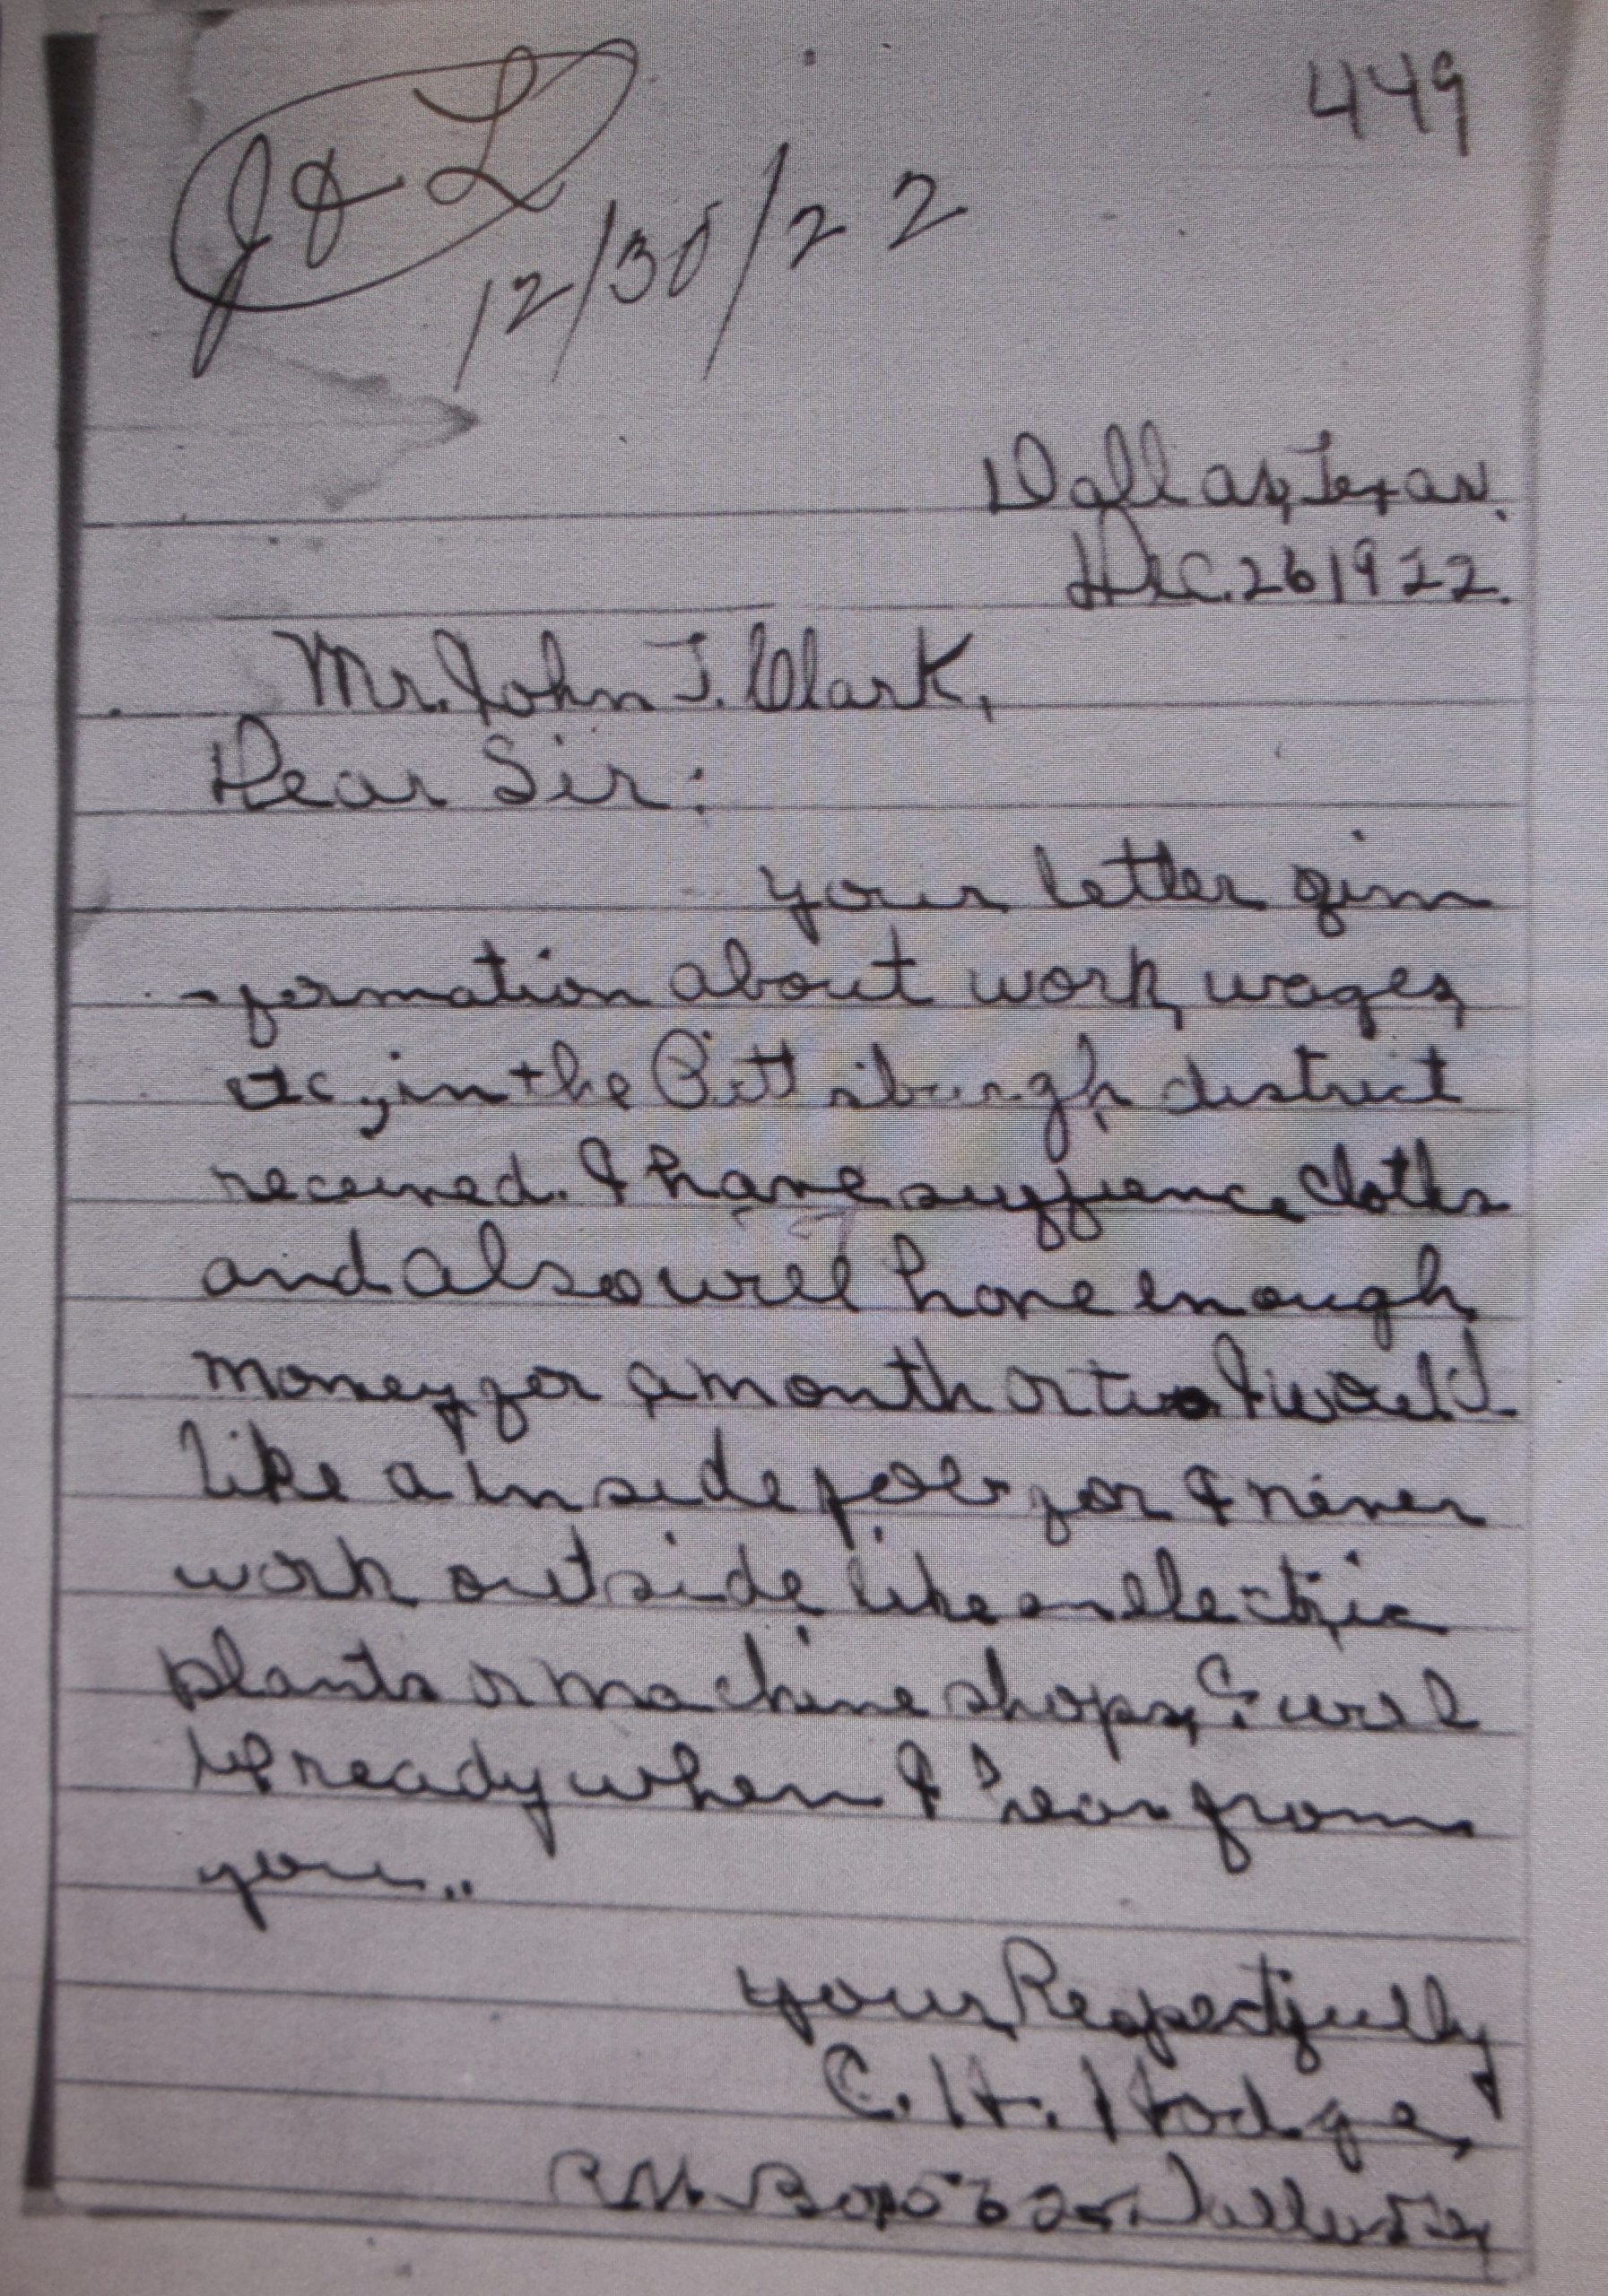 449
J & L
12/30/22
Dallas, Texas.
Dec. 26 1922.
Mr. John T. Clark,
Dear Sir:
your letter of in
-formation about work, wages,
etc, in the Pittsburgh district
received. I have cloths
and also will have enough
money for a month or two I would
like a inside job for I never
work outside, like an electric
plants or machine shops, & will
be ready when I hear from
you..
your Respectfully
C. H. Hodge,
Box